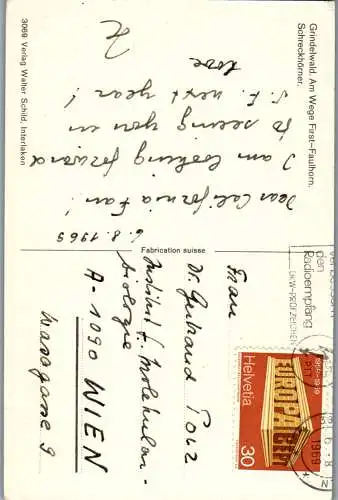 Grindelwald. Am Wege First-Faulhorn.
Schreckhörner.
6.8.1969
Dear California Fan!
I am looking forward
to seeing you in
S.F. next year!
Love
3069 Verlag Walter Schild, Interlaken
Fabrication suisse
Frau
Dr. Gertraud
Institut f. Molekular-
biologie
Wasagasse 9
A-1090 WIEN
Verbessert
den
Radioempfang
UKW-PRÜFZEICHEN
1969
1959-1969
CEPT
EUROPA
Helvetia
30